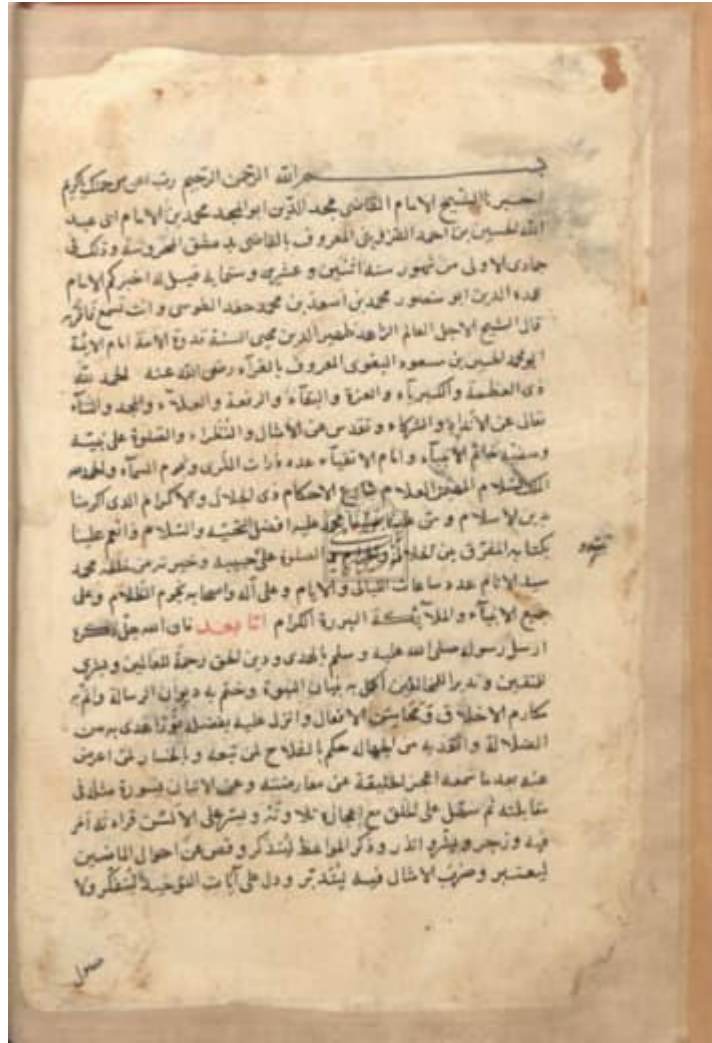 بسم الله الرحمن الرحيم رب
اخبرنا الشيخ الامام القاضى مجد الدين ابو المجد محمد بن الامام ابى عبد
الله الحسين بن احمد القزوينى المعروف بالقاضى بدمشق المحروسة وذلك فى
جمادى الاولى من شهور سنة اثنين وعشرين وستماية قيل له اخبركم الامام
عمدة الدين ابو منصور محمد بن اسعد بن محمد حفد الطوسى وانت تسمع فاقربه
قال الشيخ الاجل العالم الزاهد ظهير الدين محيى السنة قدوة الامة امام الايمة
ابو محمد الحسين بن مسعود البغوى المعروف بالفرآء رضى الله عنه الحمد لله
ذى العظمة والكبريآء والعزة والبقآء والرفعة والعلآء والمجد والثنآء
تعالى عن الأنداد والشركاء وتقدس عن الأمثال والنظرآء والصلوة على نبيه
وصفيه خاتم الانبيآء وامام الاتقيآء عدد ذرات الثرى ونجوم السمآء والحمد لله
الملك السلام المؤمن العلام شارع الاحكام ذى الجلال والاكرام الذى اكرمنا
بدين الاسلام ومن علينا بنبينا محمد عليه افضل التحية والسلام وانعم علينا
بكتابه المفرق بين الحلال والحرام والصلوة على حبيبه وخيرته من خلقه محمد
سيد الانام عدد ساعات الليالى والايام وعلى آله واصحابه نجوم الظلام وعلى
جميع الانبيآء والملآيكة البررة الكرام اما بعد فان الله جل ذكره
ارسل رسوله صلى الله عليه وسلم بالهدى ودين الحق رحمة للعالمين وبشرى
للمتقين ونذيرا للمخالفين اكمل به بنيان النبوة وختم به ديوان الرسالة واتم به
مكارم الاخلاق ومحاسن الافعال وانزل عليه بفضله نورا هدى به من
الضلالة وانقذ به من الجهالة حكم بالفلاح لمن تبعه وبالخسار لمن اعرض
عنه بعد ما سمعه اعجز الخليقة عن معارضته وعن الاتيان بسورة مثله فى
مقابلته ثم سهل على الخلق مع إعجازه تلاوته ويسر على الالسن قراءته امر
فيه وزجر وبشر وانذر وذكر المواعظ ليتذكر وقص عن احوال الماضين
ليعتبر وضرب الامثال فيه ليتدبر ودل على آيات التوحيد ليتفكر ولا